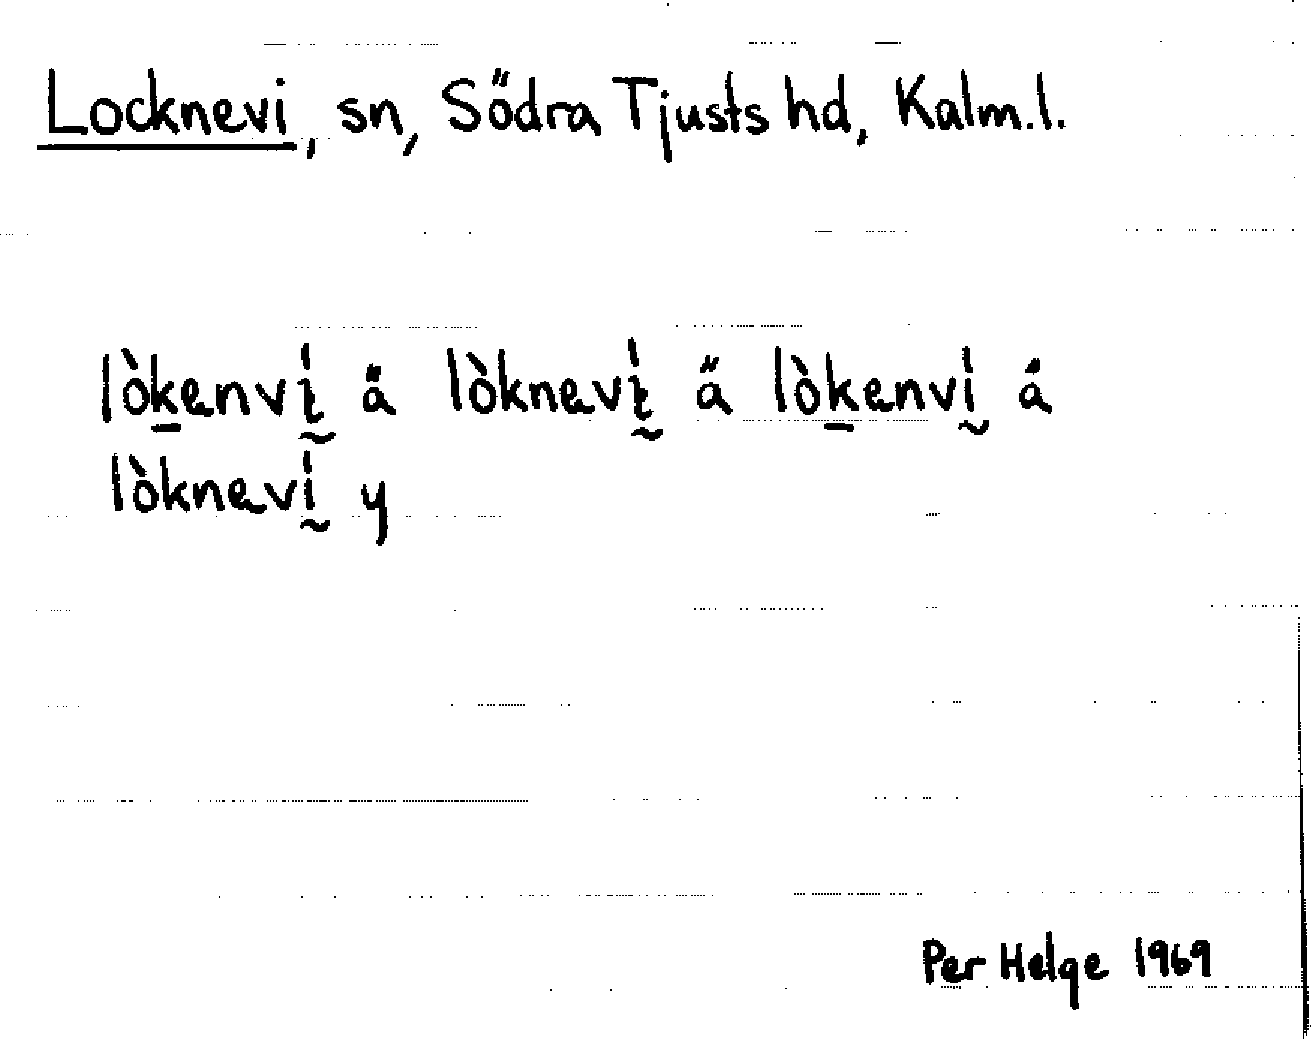 Locknevi, sn, Södra Tjusts hd, Kalm.l.
lòkenvi å lòknevi ä lòkenvi å
lòknevi y
Per Helge 1969